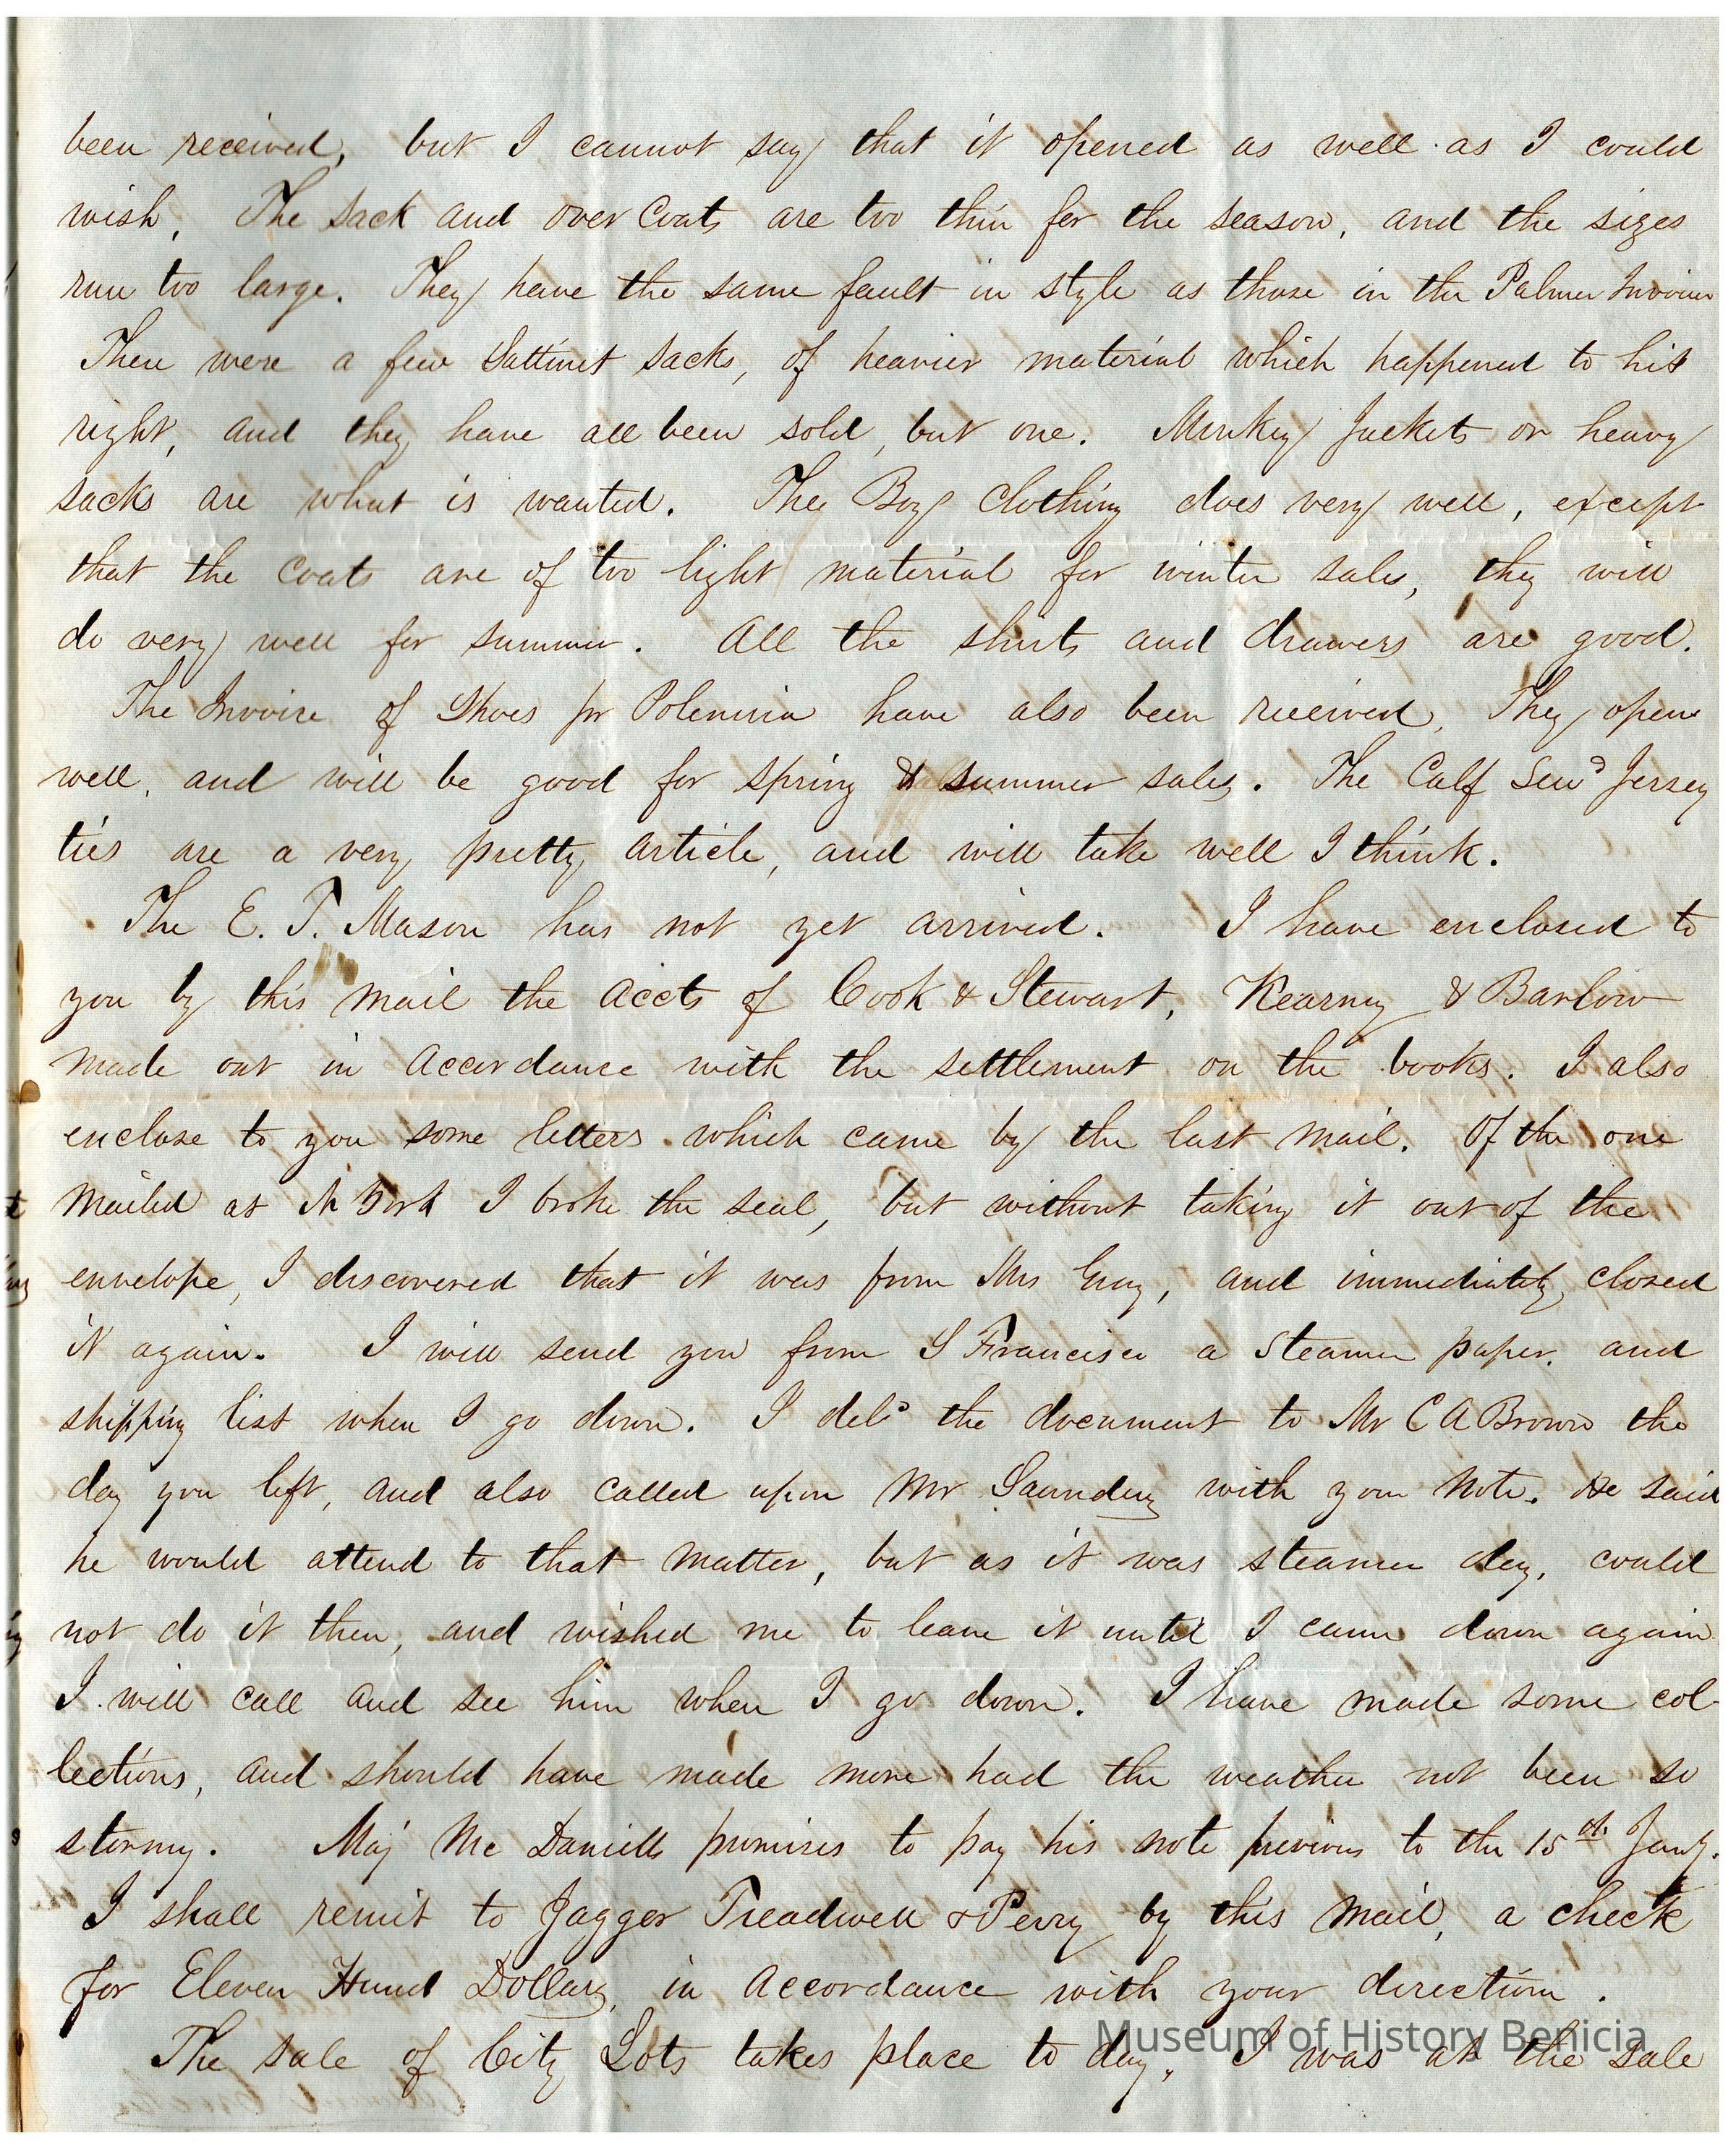 been received, but I cannot say that it opened as well as I could
wish. The Sack and over Coats are too thin for the season, and the sizes
run too large. They have the same fault in style as those in the Palmer Invoice
There were a few Sattinet Sacks, of heavier material which happened to hit
right, and they have all been sold, but one. Monkey Jackets or heavy
sacks are what is wanted. The Boys Clothing does very well, except
that the Coats are of too light material for winter sales, they will
do very well for summer. All the shirts and drawers are good.
The Invoice of Shoes pr Polenisia have also been received. They open
well, and will be good for spring & summer sales. The Calf Sewd Jersey
ties are a very pretty article, and will take well I think.
The E. T. Mason has not yet arrived. I have enclosed to
you by this mail the accts of Cook & Stewart, Kearny & Barlow
made out in accordance with the settlement on the books. I also
enclose to you some letters which came by the last mail. Of the one
mailed at N York I broke the seal, but without taking it out of the
envelope, I discovered that it was from Mrs Gray, and immediately closed
it again. I will send you from S Francisco a Steamer paper. and
shipping list when I go down. I deld the document to Mr C A Brown the
day you left, and also called upon Mr Saunders with your Note. He said
he would attend to that matter, but as it was steamer day, could
not do it then, and wished me to leave it until I came down again
I will call and see him when I go down. I have made some col-
lections, and should have made more had the weather not been so
stormy. Maj Mc Daniells promises to pay his note previous to the 15th Jany.
I shall remit to Jagger Treadwell & Perry by this mail, a check
for Eleven Hund Dollars, in accordance with your direction.
The sale of City Lots takes place to day, I was at the sale
Museum of History Benicia